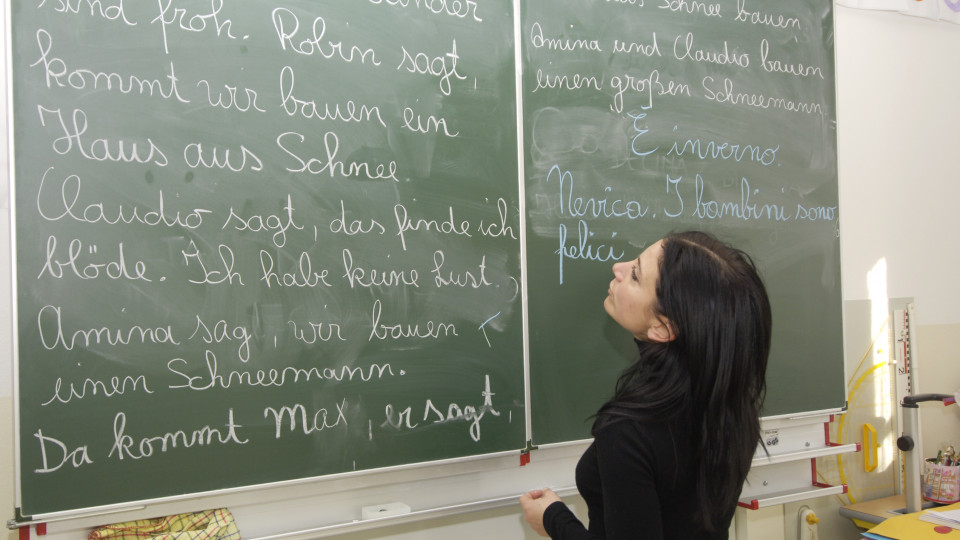 sind froh. Robin sagt,
kommt wir bauen ein
Haus aus Schnee.
Claudio sagt, das finde ich
blöde. Ich habe keine Lust.
Amina sag, wir bauen
einen Schneemann.
Da kommt Max, er sagt,
aus Schnee bauen
Amina und Claudio bauen
einen großen Schneemann
È inverno.
Nevica. I bambini sono
felici